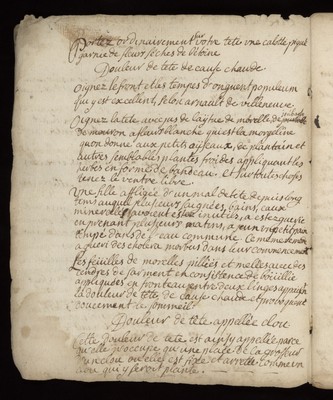 Portez ordinairement sur votre tete une calotte piquée
garnie de fleurs seches de betoine
Douleur de tete de cause chaude
oignez le front et les temples d'onguent populeum
qui y est excellent, selon arnault de villeneuve
oignez la tete avec jus de laytue de morelle, de joubarbe
de mouron a fleurs blanche qui est la morgeline
quon donne aux petits oyseaux, de plantain et
autres semblables plantes froides appliquant les
herbes en forme de bandeau. et sur toutes choses
tenez le ventre libre
une fille affligée d'un mal de tete depuis long
tems auquel plusieurs saignées, bains, eaux
minerelles avoient esté inutiles, a esté guerie
en prenant plusieurs matins, a jeun
d'eau commune. Ce meme remede
a gueri des cholera morbus dans leur commencement
Les feuilles de morelles pilées et mellees avec des
cendres de sarment en consistence de bouillie
appliquées en fronteau entre deux linges appaisent
la douleur de tete de cause chaude et provoquent
doucement le sommeil
Douleur de tete appellée clou
cette douleur de tete est ainsy appellée parce
qu'elle n'occupe qu'une place de la grosseur
d'un clou ou elle est fixe et arretée comme un
clou qui y seroit planté.